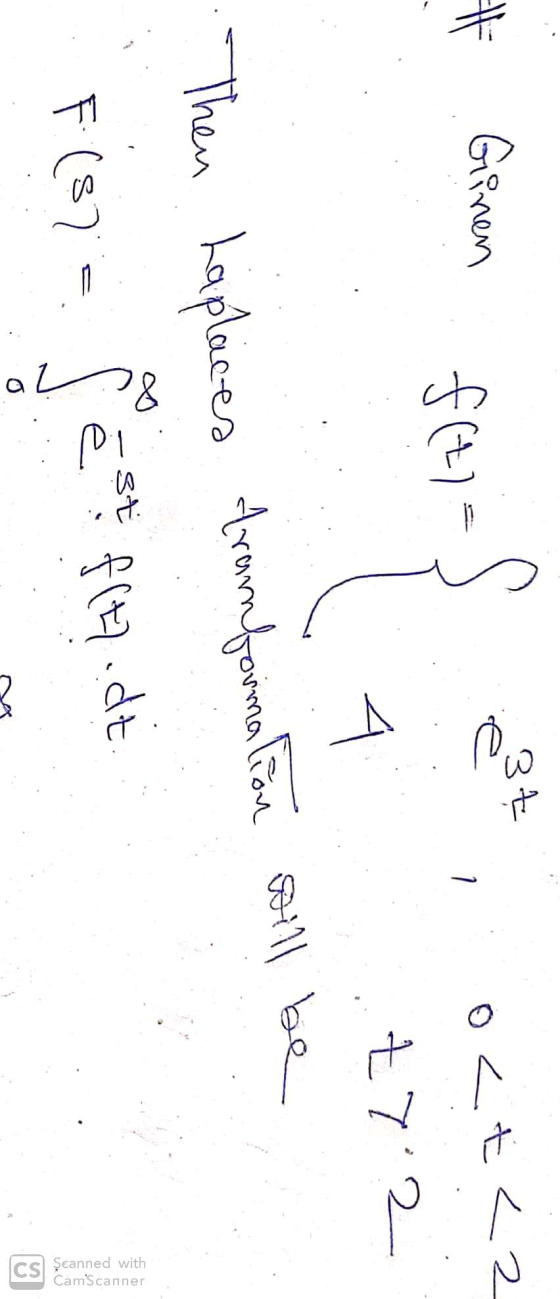 # Given f(t) = { e^{3t} , 0 < t < 2
1 t > 2
Then Laplaces transformation will be
F(s) = ∫_0^∞ e^{-st} . f(t) . dt
CS Scanned with
CamScanner